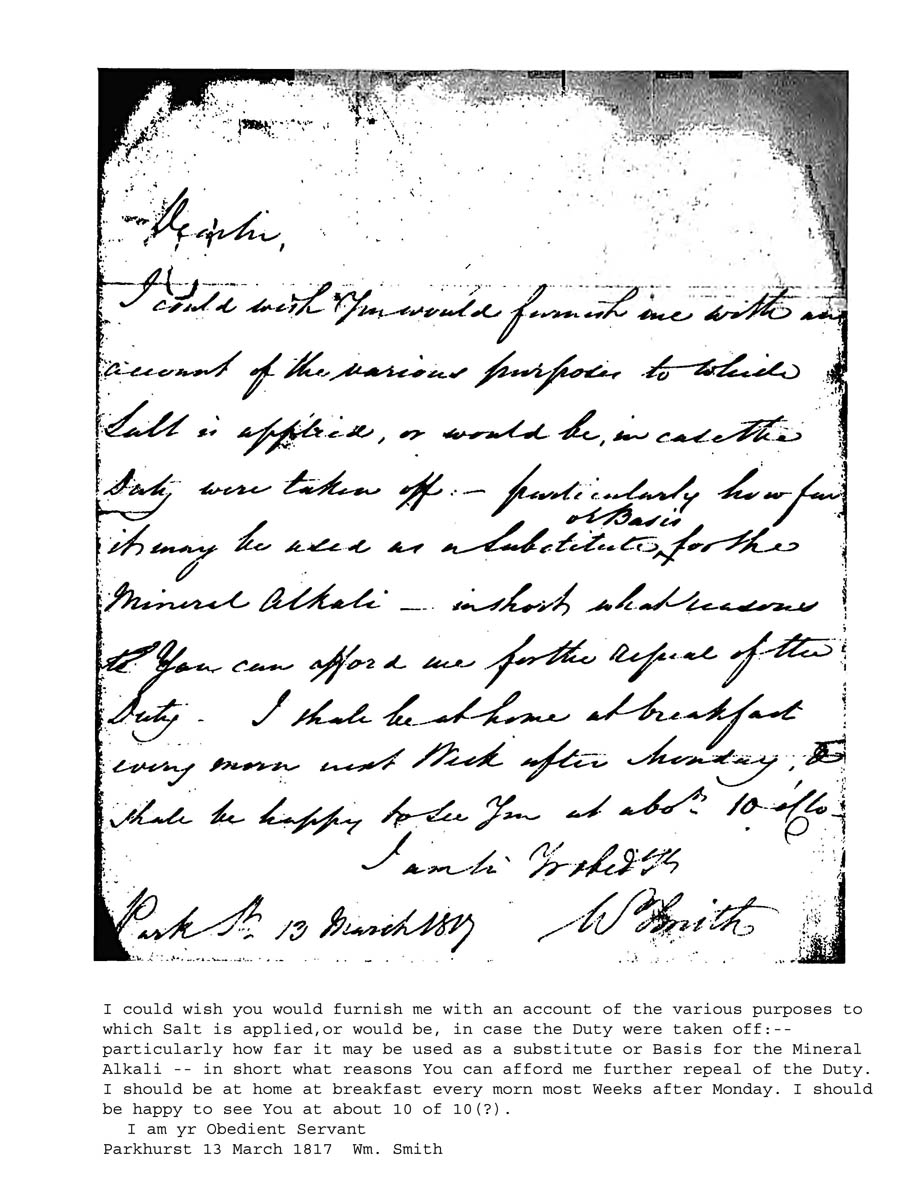 Dear Sir,
I could wish You would furnish me with an
account of the various purposes to which
Salt is applied, or would be, in case the
Duty were taken off:— particularly how far
or Basis
it may be used as a Substitute for the
Mineral Alkali — in short what reasons
You can afford me for the Repeal of the
Duty. I shall be at home at breakfast
every morn next Week after Monday, &
shall be happy to See You at abot 10 o'Clo
I am Sir Yr obedt St
Park St. 13 March 1817 Wm Smith
I could wish you would furnish me with an account of the various purposes to
which Salt is applied,or would be, in case the Duty were taken off:--
particularly how far it may be used as a substitute or Basis for the Mineral
Alkali -- in short what reasons You can afford me further repeal of the Duty.
I should be at home at breakfast every morn most Weeks after Monday. I should
be happy to see You at about 10 of 10(?).
I am yr Obedient Servant
Parkhurst 13 March 1817 Wm. Smith